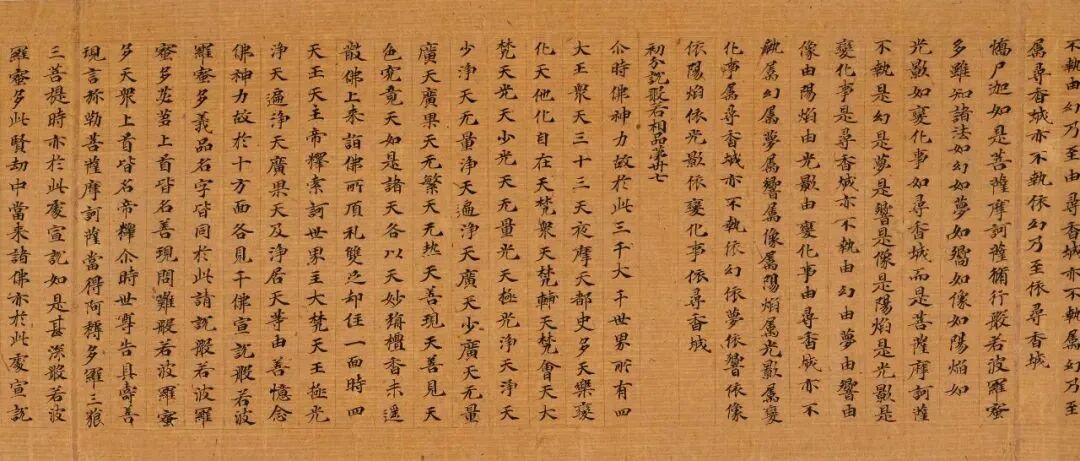 不執由幻乃至由尋香城亦不執属幻乃至
属尋香城亦不執依幻乃至依尋香城
憍尸迦如是菩薩摩訶薩修行般若波羅蜜
多雖知諸法如幻如夢如響如像如陽焰如
光影如變化事如尋香城而是菩薩摩訶薩
不執是幻是夢是響是像是陽焰是光影是
變化事是尋香城亦不執由幻由夢由響由
像由陽焰由光影由變化事由尋香城亦不
執属幻属夢属響属像属陽焰属光影属變
化事属尋香城亦不執依幻依夢依響依像
依陽焰依光影依變化事依尋香城
初分說般若相品第卅七
尒時佛神力故於此三千大千世界所有四
大王衆天三十三天夜摩天都史多天樂變
化天他化自在天梵衆天梵輔天梵會天大
梵天光天少光天无量光天極光淨天淨天
少淨天无量淨天遍淨天廣天少廣天无量
廣天廣果天无繁天无热天善現天善見天
色究竟天如是諸天各以天妙旃檀香末遥
散佛上来詣佛所頂礼雙足却住一面時四
天王天主帝釋索訶世界主大梵天王極光
淨天遍淨天廣果天及淨居天等由善憶念
佛神力故於十方面各見千佛宣說般若波
羅蜜多義品名字皆同於此請說般若波羅
蜜多苾芻上首皆名善現問難般若波羅蜜
多天衆上首皆名帝釋尒時世尊告具壽善
現言弥勒菩薩摩訶薩當得阿耨多羅三藐
三菩提時亦於此處宣說如是甚深般若波
羅蜜多此賢劫中當来諸佛亦於此處宣說